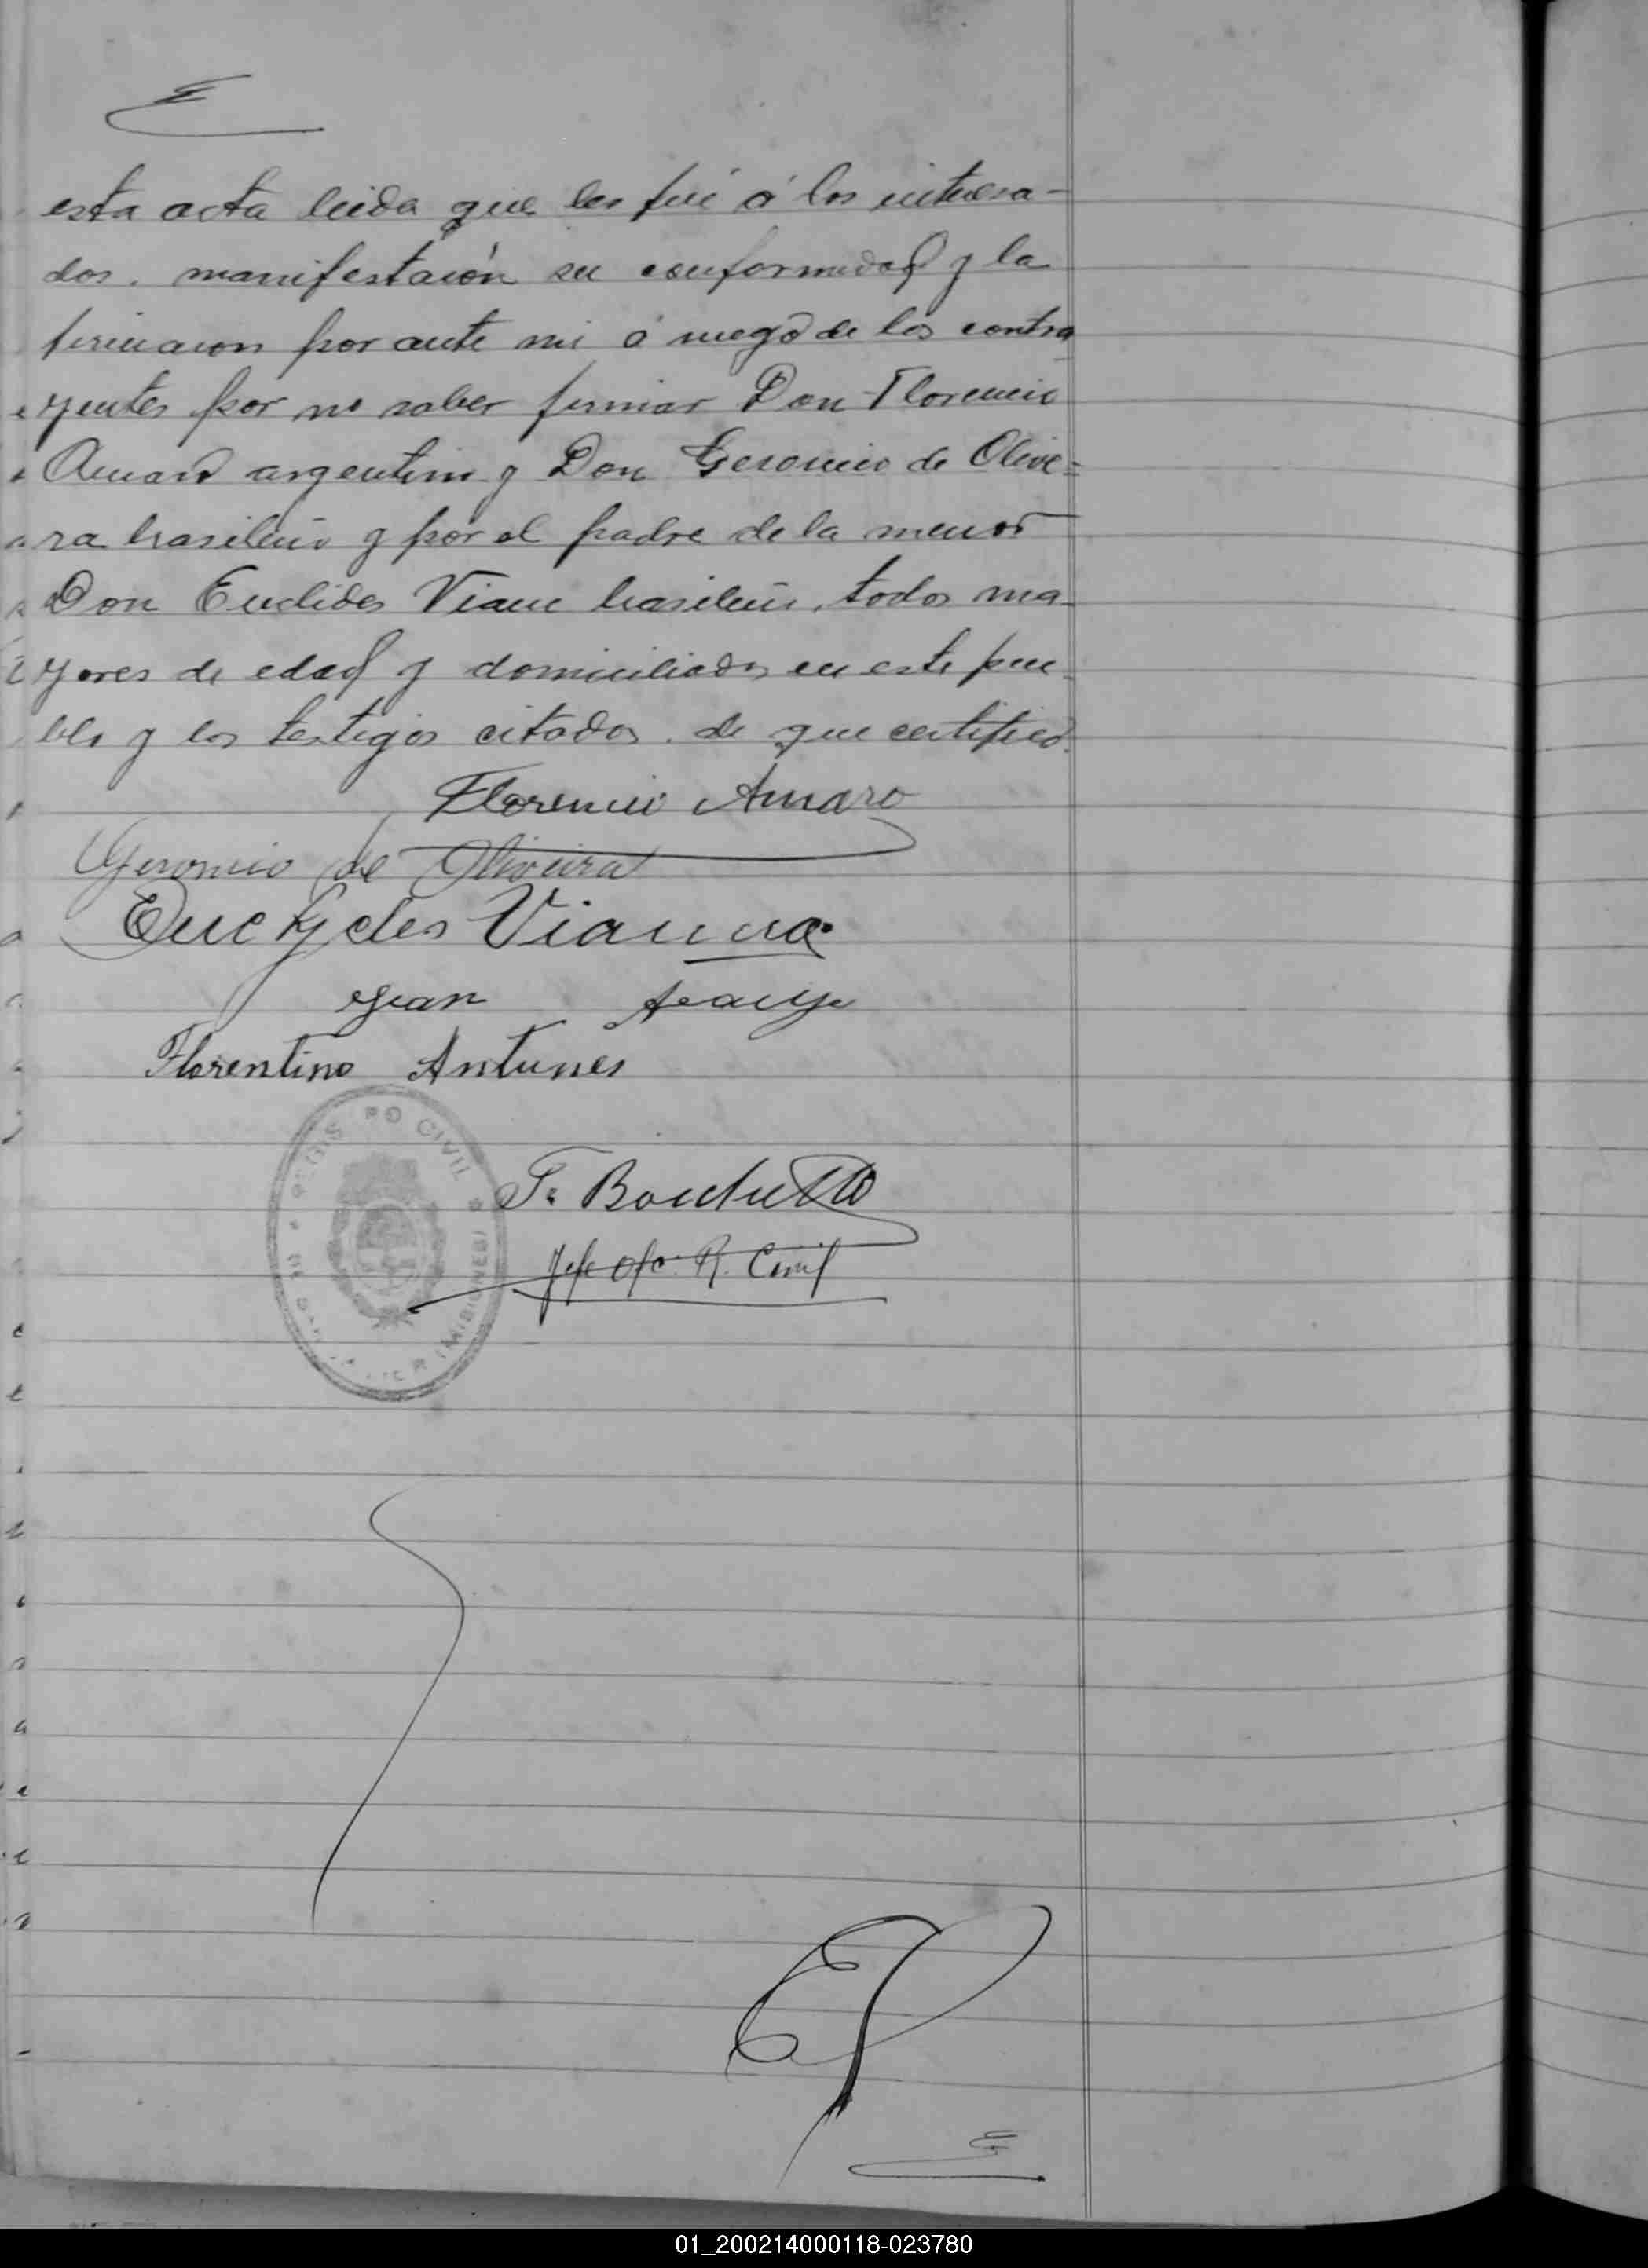 esta acta leida que les fué á los interesa-
dos. manifestaron su conformidad y la
firmaron por ante mi á ruego de los contra
yentes por no saber firmar Don Florencio
Amaro argentino y Don Geronicio de Olivei=
ra brasileño y por el padre de la menor
Don Euclides Viana brasileño, todos ma-
yores de edad y domiciliados en este pue-
blo y los testigos citados. de que certifico.
Florencio Amaro
Geronicio de Oliveira
Euclydes Vianna
Juan Araujo
Florentino Antunes
REGISTRO CIVIL
(MISIONES)
Jefe Ofc. R. Civil
01_200214000118-023780